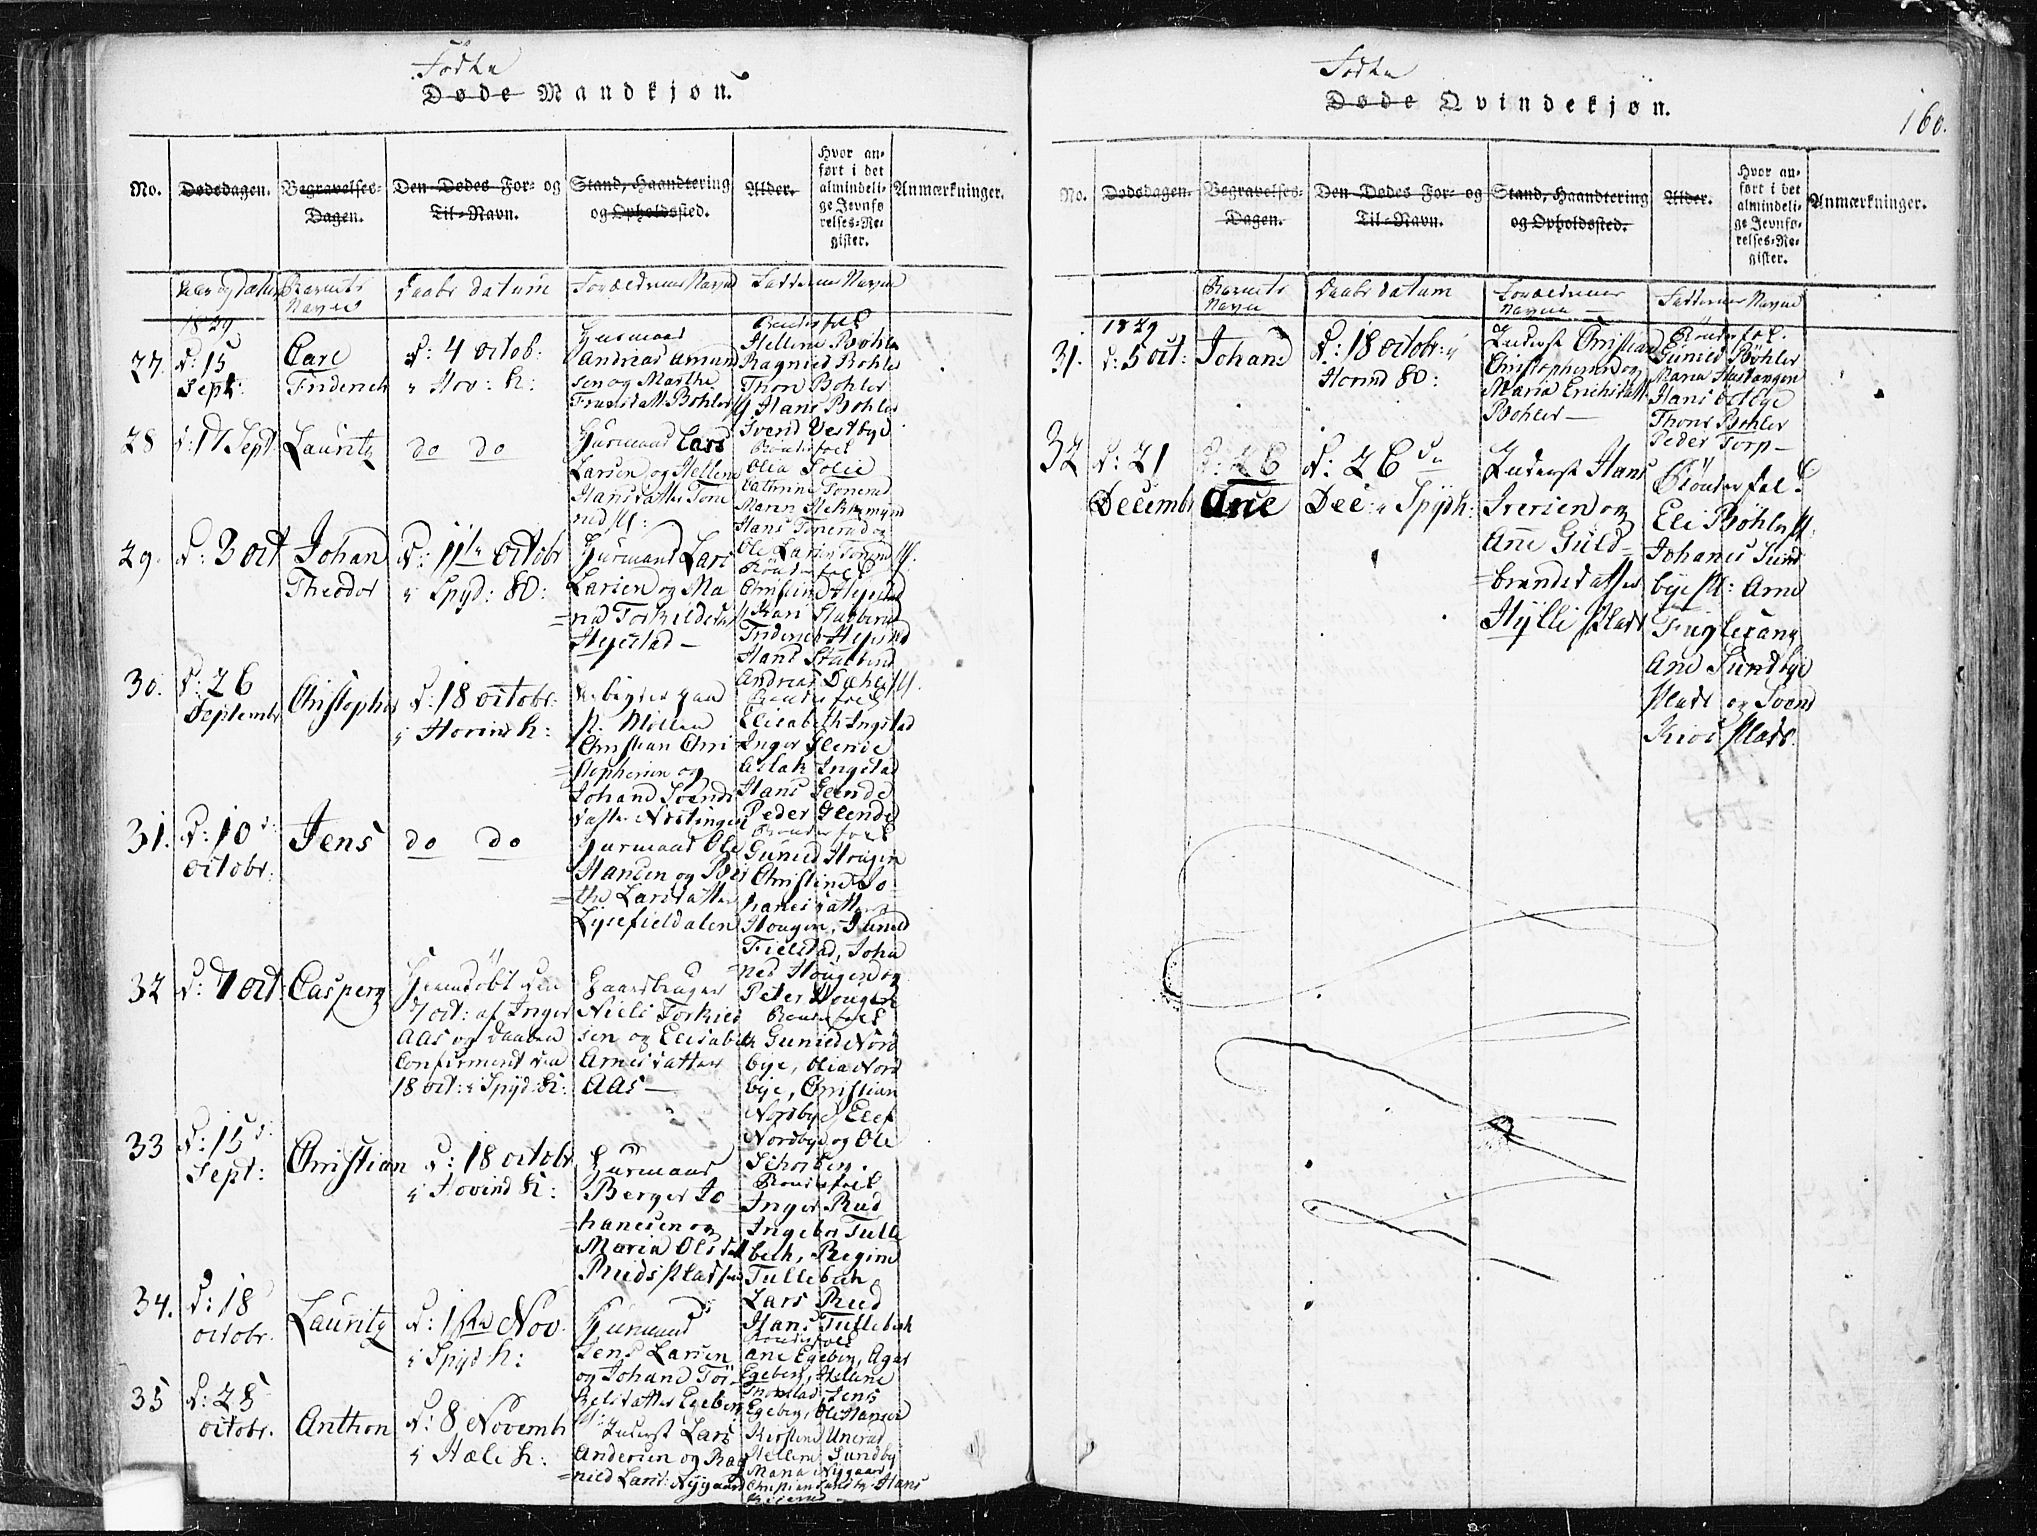 Fødte
Døde Mandkjøn.
No.
Dødsdagen.
Begravelses-
Dagen.
Den Dødes For- og
Til-Navn.
Stand, Haandtering
og Opholdssted.
Alder.
Hvor an-
ført i det
almindeli-
ge Jevnfø-
relses-Re-
gister.
Anmærkninger.
Barnets
Navn
Daabs datum
Forældrenes Navne
Faddernes Navne
1829
27.
d: 15
Sept:
Carl
Friderich
d: 4 octob:
i Hov: K:
Huusmand
Andreas Amund
sen og Marthe
Fransdatt Böhler
Bondefolk
Hellene Böhler
Ragnild Böhler
Thore Böhler
Hans Böhler
Svend Vestbye
28
d: 17 Sept
Lauritz
do do
Huusmand Lars
Larsen og Hellene
Hansdatter Tone
rud
Bondefolk
Olia Solie
Cathrine Tonerud
Maren
Hans Tonerud og
Ole Larsen Tonerud
29.
d: 3 oct
Johan
Theodor
d: 11te octobr
i Spyd: K:
Huusmand Lars
Larsen og Ma
ria Torkildsdat
Hejestad
Bondefolk
Christine
Kari
Friderich
Hans
Andreas Dæhle
30.
d: 26
Septembr
Christopher
d: 18 octobr:
i Hovind K:
p. Möllen
Christian Chri
stophersen og
Johane Svends
datter
Bondefolk
Elisabeth Ingstad
Inger Glende
Aslak Ingstad
Hans Glende
Peder Glende
31.
d: 10
octobr:
Jens
do do
Huusmand Ole
Hansen og Ber
the Larsdatter
Lysefieldalen
Bondefolk
Gunild Hougen
Christine Jo
hanesdatter
Hougen, Gunild
Fielstad, Joha
nes Hougen og
Peter Hougen
32
d: 7 oct:
Casper
Hiemdöbt den
7 oct: af Inger
Aas og daaben
Confirmert den
18 oct: i Spyd: K:
Gaardbruger
Niels Torkild
sen og Elisabeth
Arnesdatter
Aas
Bondefolk
Gunild Nord
bye, Olia Nord
bye, Christian
Nordbye, Elef
Nordbye og Ole
33
d: 15
Sept:
Christian
d: 18 octobr
i Hovind K:
Huusmand
Berger Jo
hanesen og
Maria Olsdat
Ruds Pladsen
Bondefolk
Inger Rud
Ingebor Tulle
bech, Regine
Tullebech
Lars Rud
Hans Tullebech
34.
d: 18
octobr.
Lauritz
d: 1ste Nov.
i Spyd K:
Huusmand
Jens Larsen
og Johane Tör
Bondefolk
Ane Egeberg,
Egeberg, Hellene
Jens
Egeberg, Ole Hansen
35
d: 25
octobr.
Anthon
d: 8 Novemb
i Hæli K:
Inderst Lars
Andersen og Rag
nild Lars: Nygaard
Kirstine
Hellene Sundby
Maria Nygaard
Christian Sundby Hans
Fødte
Døde Qvindekjøn.
160.
No.
Dødsdagen.
Begravelses-
Dagen.
Den Dødes For- og
Til-Navn.
Stand, Haandtering
og Opholdssted.
Alder.
Hvor an-
ført i det
almindeli-
ge Jevnfø-
relses-Re-
gister.
Anmærkninger.
Barnets
Navn
Daabs datum
Forældrenes
Navne
Faddernes Navne
1829
31.
d: 5 oct:
Johane
d: 18 octobr: i
Hovind K:
Inderst Christian
Christophersen og
Maria Erichsdatt
Böhler
Bondefolk.
Gunild Böhler
Maria
Hans
Thore Böhler
Peder Torp
32
d: 21
Decembr
d: 26
Ane
d: 26 de
Dec: i Spyd K:
Inderst Hans
Iversen og
Ane Guld-
brandsdatter
Hylli plads
Bondefolk
Eli Böhler
Johanes Sund
bye pl: Arne
Fuglesang
Ane Sundbye
plads og Svend
plads.